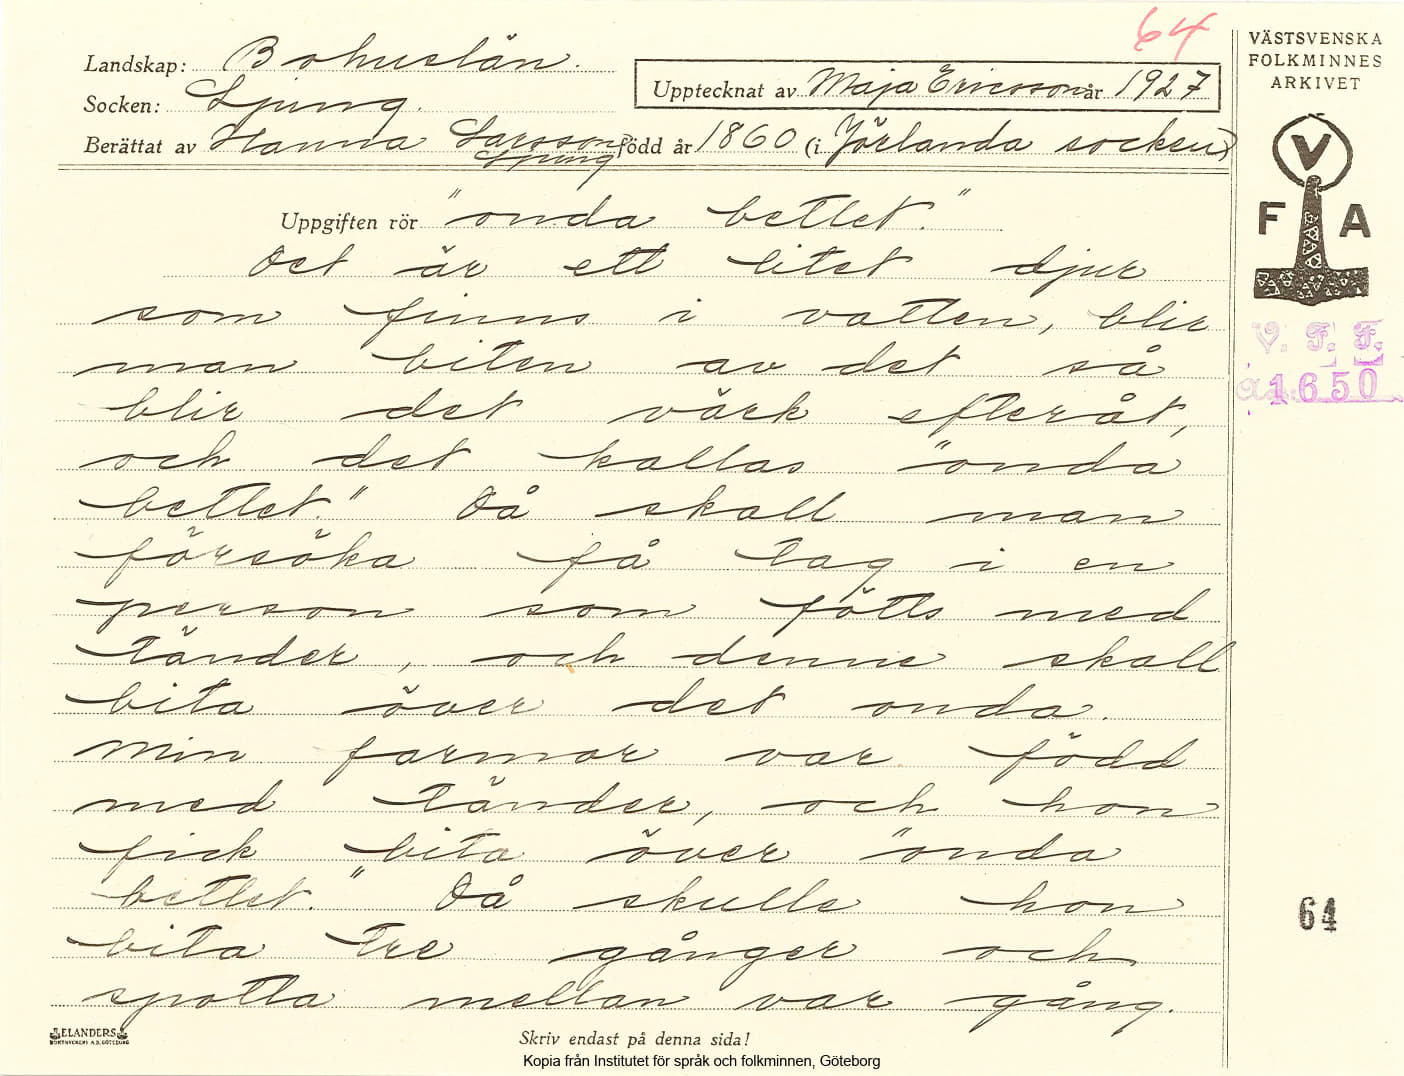 64
Landskap: Bohuslän.
Socken: Ljung.
Upptecknat av Maja Ericsson år 1927
Berättat av Hanna Larsson född år 1860 (i Jörlanda socken)
Ljung
VÄSTSVENSKA
FOLKMINNES
ARKIVET
V
F A
V. F. F.
1650
Uppgiften rör "onda bettet."
Det är ett litet djur
som finns i vatten, blir
man biten av det så
blir det värk efteråt,
och det kallas "onda
bettet." Då skall man
försöka få tag i en
person som fötts med
tänder, och denne skall
bita över det onda.
Min farmor var född
med tänder, och hon
fick bita över "onda
bettet." Då skulle hon
bita tre gånger och
spotta mellan var gång.
64
ELANDERS
Skriv endast på denna sida!
Kopia från Institutet för språk och folkminnen, Göteborg